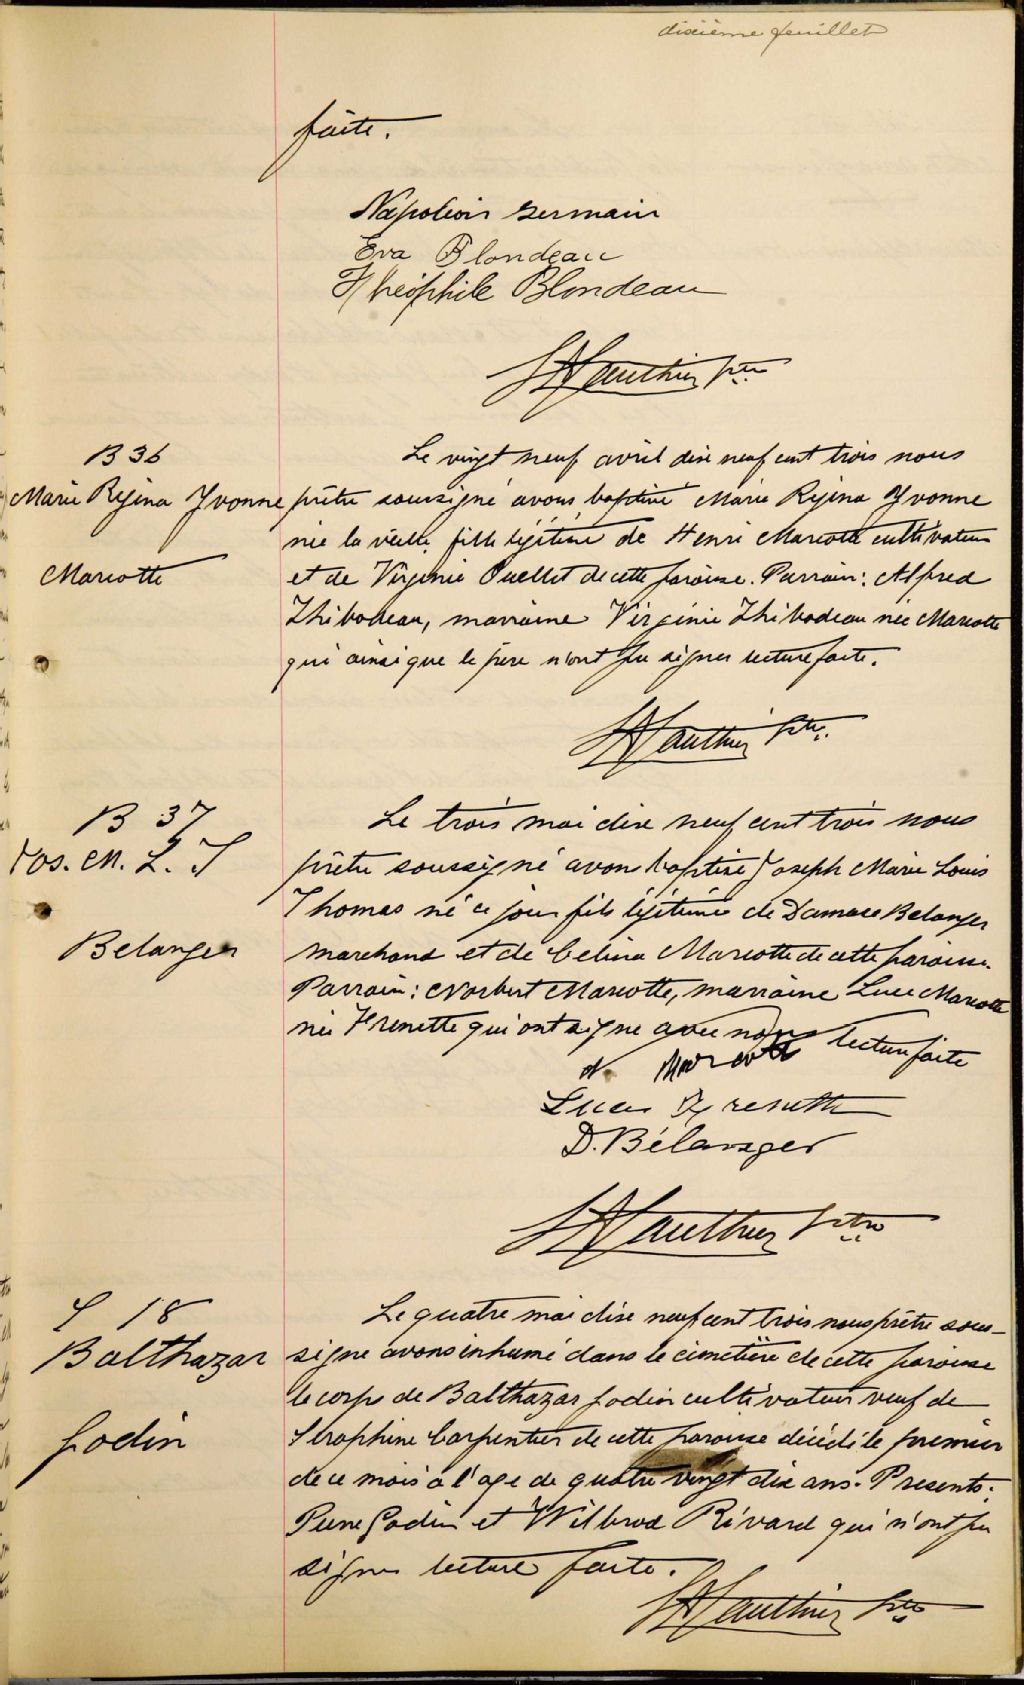 dixième feuillet
faite.
Napoléon Germain
Eva Blondeau
Théophile Blondeau
Gauthier ptre
B 36
Marie Rejina Yvonne
Marcotte
Le vingt neuf avril dix neuf cent trois nous
prêtre soussigné avons baptisé Marie Rejina Yvonne
née la veille, fille légitime de Henri Marcotte cultivateur
et de Virginie Ouellet de cette paroisse. Parrain: Alfred
Thibodeau, marraine Virginie Thibodeau née Marcotte
qui ainsi que le père n'ont pu signer lecture faite.
Gauthier ptre
B 37
Jos. M. L. T
Belanger
Le trois mai dix neuf cent trois nous
prêtre soussigné avons baptisé Joseph Marie Louis
Thomas né ce jour fils légitime de Damase Belanger
marchand et de Celina Marcotte de cette paroisse.
Parrain: Norbert Marcotte, marraine Luce Marcotte
née Frenette qui ont signé avec nous lecture faite
N Marcotte
Luce Frenette
D. Bélanger
Gauthier ptre
S 18
Balthazar
Godin
Le quatre mai dix neuf cent trois nous prêtre sous-
signe avons inhumé dans le cimetière de cette paroisse
le corps de Balthazar Godin cultivateur veuf de
Séraphine Carpentier de cette paroisse décédé le premier
de ce mois à l'age de quatre vingt dix ans. Presents:
Pierre Godin et Wilbrod Rivard qui n'ont pu
signer lecture faite.
Gauthier ptre